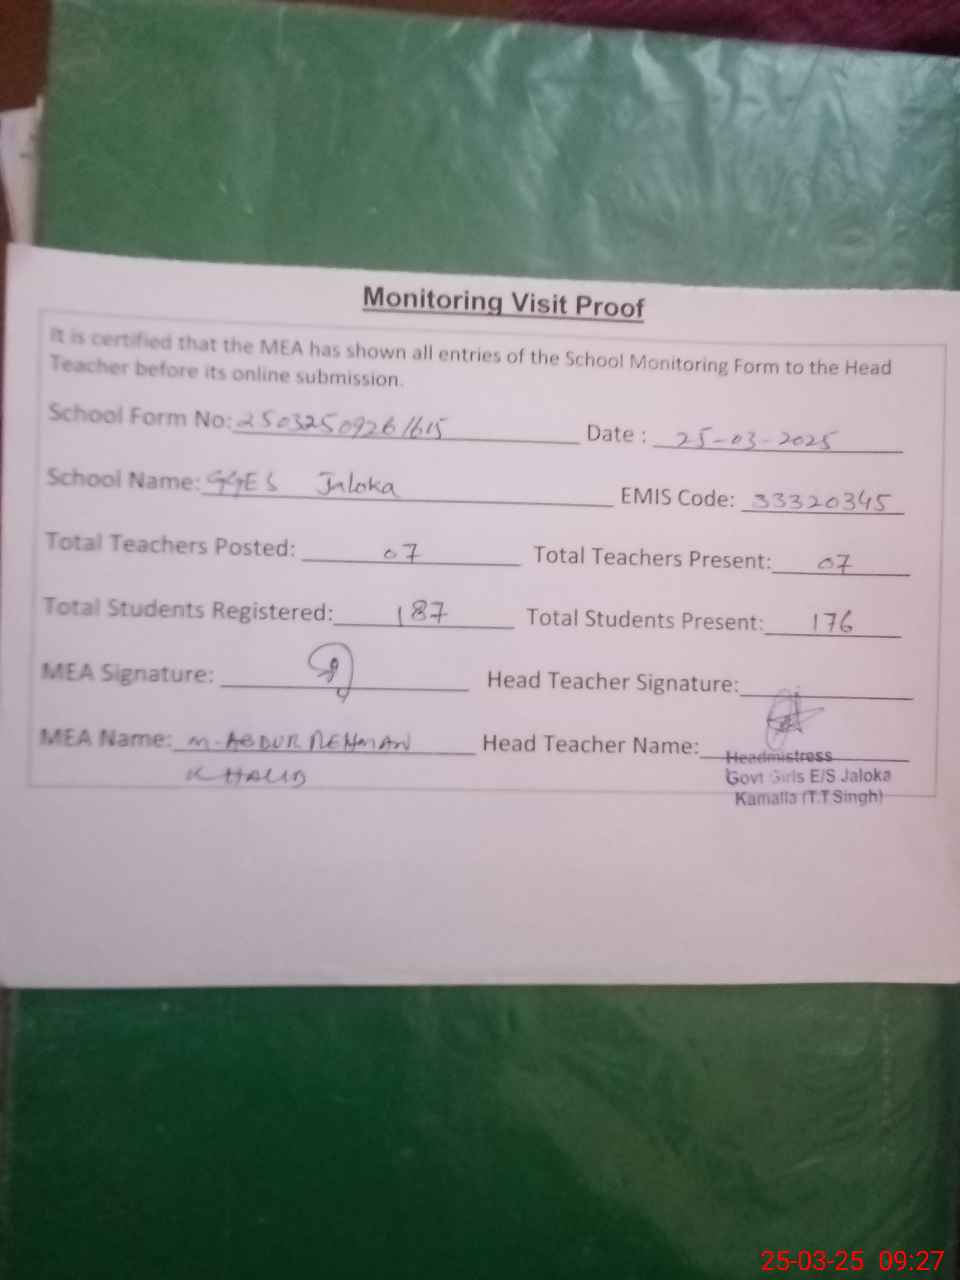 Monitoring Visit Proof
It is certified that the MEA has shown all entries of the School Monitoring Form to the Head
Teacher before its online submission.
School Form No: 25032509261615 Date : 25-03-2025
School Name: GGES Jaloka EMIS Code: 33320345
Total Teachers Posted: 07 Total Teachers Present: 07
Total Students Registered: 187 Total Students Present: 176
MEA Signature: Head Teacher Signature:
MEA Name: M-ABDUR REHMAN Head Teacher Name:
KHALID
Headmistress
Govt Girls E/S Jaloka
Kamalia (T.T Singh)
25-03-25 09:27